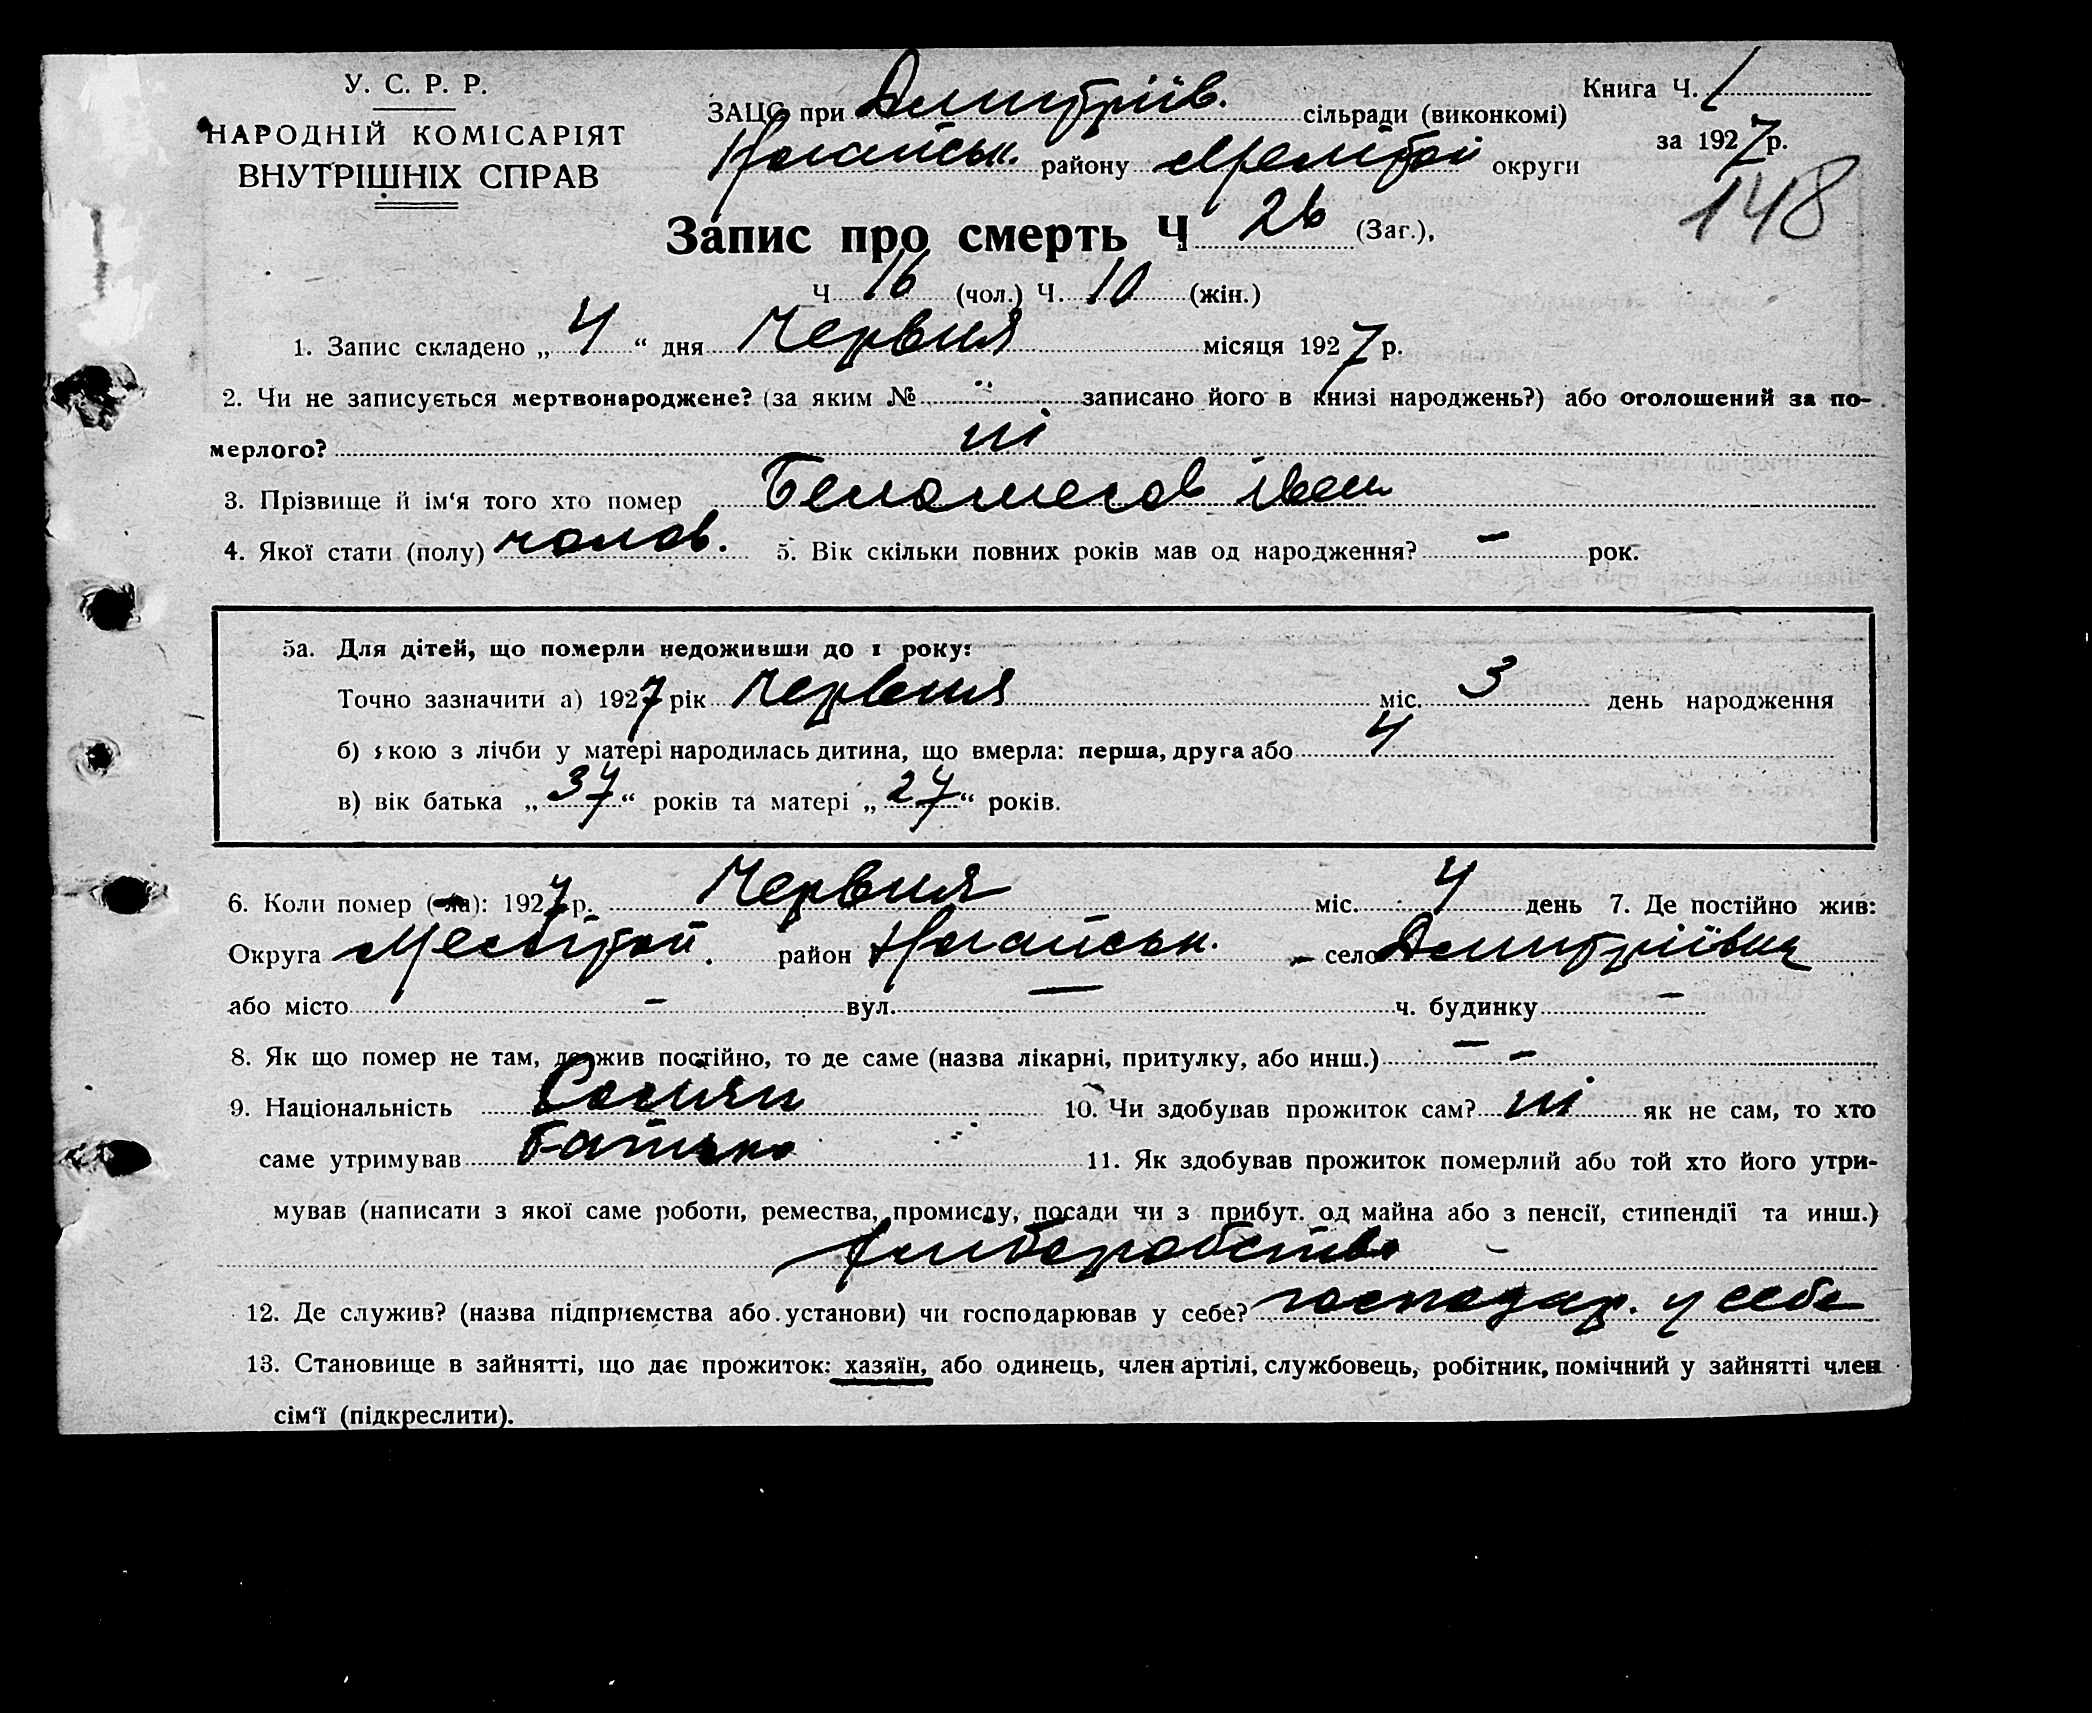 У. С. Р. Р.
НАРОДНІЙ КОМІСАРІЯТ
ВНУТРІШНІХ СПРАВ
ЗАЦС при Дмитріїв. сільради (виконкомі)
Ногайськ. району Мелітоп округи
Книга Ч. 1
за 1927 р.
148
Запис про смерть Ч 26 (Заг.),
Ч 16 (чол.) Ч. 10 (жін.)
1. Запис складено „ 4 “ дня Червня місяця 1927 р.
2. Чи не записується мертвонароджене? (за яким № записано його в книзі народжень?) або оголошений за по-
мерлого? ні
3. Прізвище й ім‘я того хто помер Іван
4. Якої стати (полу) чолов. 5. Вік скільки повних років мав од народження? – рок.
5а. Для дітей, що померли недоживши до 1 року:
Точно зазначити а) 1927 рік Червня міс. 3 день народження
б) якою з лічби у матері народилась дитина, що вмерла: перша, друга або 4
в) вік батька „ 37 “ років та матері „ 27 “ років.
6. Коли помер (-ла): 1927 р. Червня міс. 4 день 7. Де постійно жив:
Округа Мелітоп. район Ногайськ. село Дмитріївка
або місто – вул. – ч. будинку –
8. Як що помер не там, де жив постійно, то де саме (назва лікарні, притулку, або инш.) – –
9. Національність 10. Чи здобував прожиток сам? ні як не сам, то хто
саме утримував батько 11. Як здобував прожиток померлий або той хто його утри-
мував (написати з якої саме роботи, ремества, промислу, посади чи з прибут. од майна або з пенсії, стипендії та инш.)
хліборобство
12. Де служив? (назва підприємства або установи) чи господарював у себе? господар. у себе
13. Становище в зайнятті, що дає прожиток: хазяїн, або одинець, член артілі, службовець, робітник, помічний у зайнятті член
сім‘ї (підкреслити).